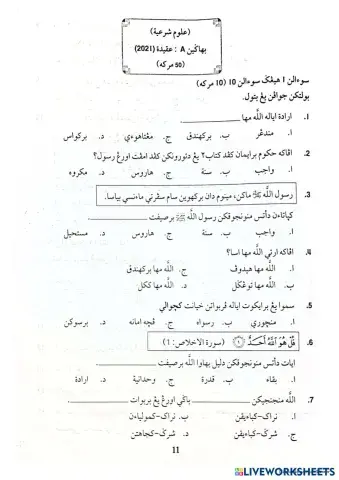 (علوم شرعية)
بهاڬين A : عقيدة (2021)
(50 مركه)
سوءالن 1 هيڠݢ سوءالن 10 (10 مركه)
بولتكن جواڤن يڠ بتول.
1. ارادة اياله الله مها ______
ا. مندڠر ب. بركهندق ج. مڠتاهوءي د. بركواس
2. اڤاكه حكوم برايمان كڤد كتاب٢ يڠ دتورونكن كڤد امڤت اورڠ رسول؟
ا. واجب ب. سنة ج. هاروس د. مكروه
3. رسول الله ﷺ ماكن، مينوم دان بركهوين سام سڤرتي مأنسي بياسا.
كياتاءن دأتس منونجوقكن رسول الله ﷺ برصيفت ______
ا. واجب ب. سنة ج. هاروس د. مستحيل
4. اڤاكه ارتي الله مها اسا؟
ا. الله مها هيدوڤ ج. الله مها بركهندق
ب. الله مها توڠݢل د. الله مها ككل
5. سموا يڠ برايكوت اياله ڤربواتن خيانت كچوالي
ا. منچوري ب. رسواه ج. ڤچه امانه د. برسوكن
6. قُلْ هُوَ ٱللَّهُ أَحَدٌ ۝١ (سورة الاخلاص : 1)
ايات دأتس منونجوقكن دليل بهاوا الله برصيفت ______
ا. بقاء ب. قدرة ج. وحدانية د. ارادة
7. الله منجنجيكن ______ باݢي اورڠ يڠ بربوات ______
ا. نراك-كباءيقن ب. نراك-كمولياءن
ج. شرݢ-كباءيقن د. شرݢ-كجاهتن
11
LIVEWORKSHEETS